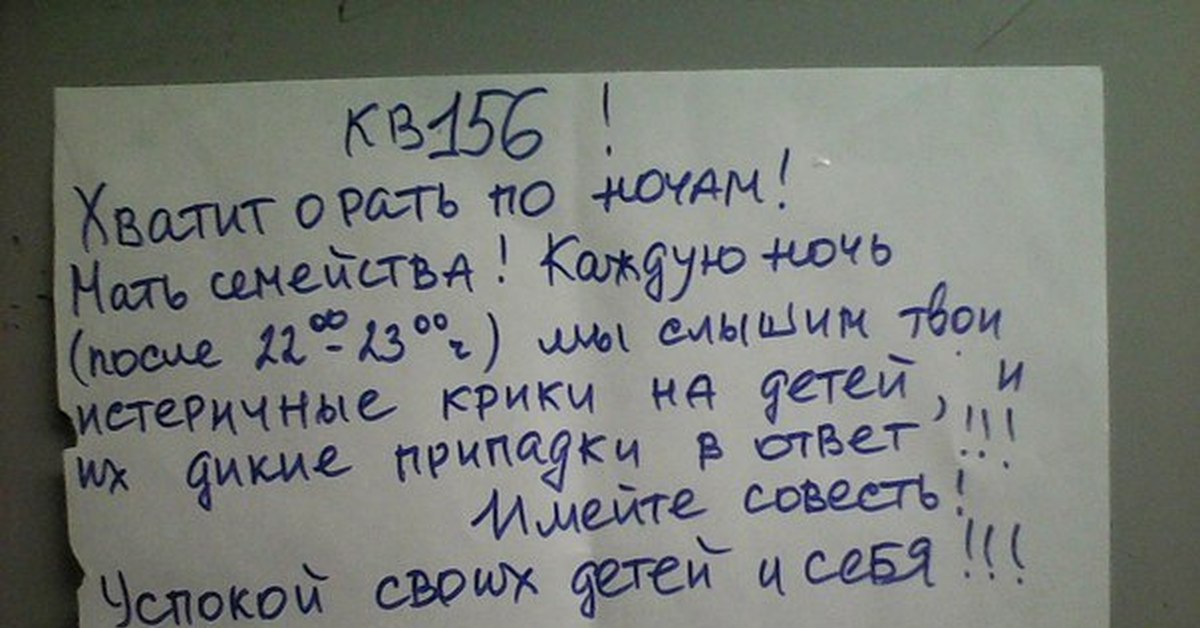 КВ156 !
Хватит орать по ночам!
Мать семейства! Каждую ночь
(после 22⁰⁰-23⁰⁰ч) мы слышим твои
истеричные крики на детей, и
их дикие припадки в ответ !!!
Имейте совесть!
Успокой своих детей и себя!!!